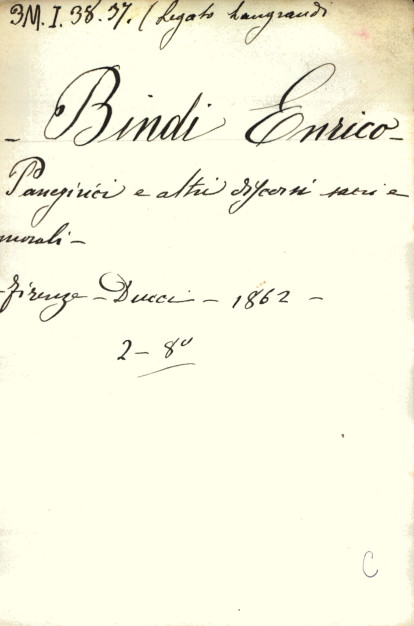 3M. I. 38. 37. (Legato Langrandi
- Bindi Enrico -
Panegirici e altri discorsi sacri e
morali -
- Firenze - Ducci - 1862 -
2 - 8º
C